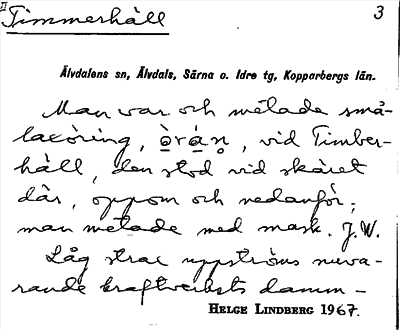 II
Timmerhåll 3
Älvdalens sn, Älvdals, Särna o. Idre tg, Kopparbergs län.
Man var och metade små-
laxöring, òrán, vid Timber-
håll, den stod vid skäret
där, oppom och nedanför;
man metade med mask. J.W.
Låg strax uppströms nuva-
rande kraftverkets damm –
HELGE LINDBERG 1967.